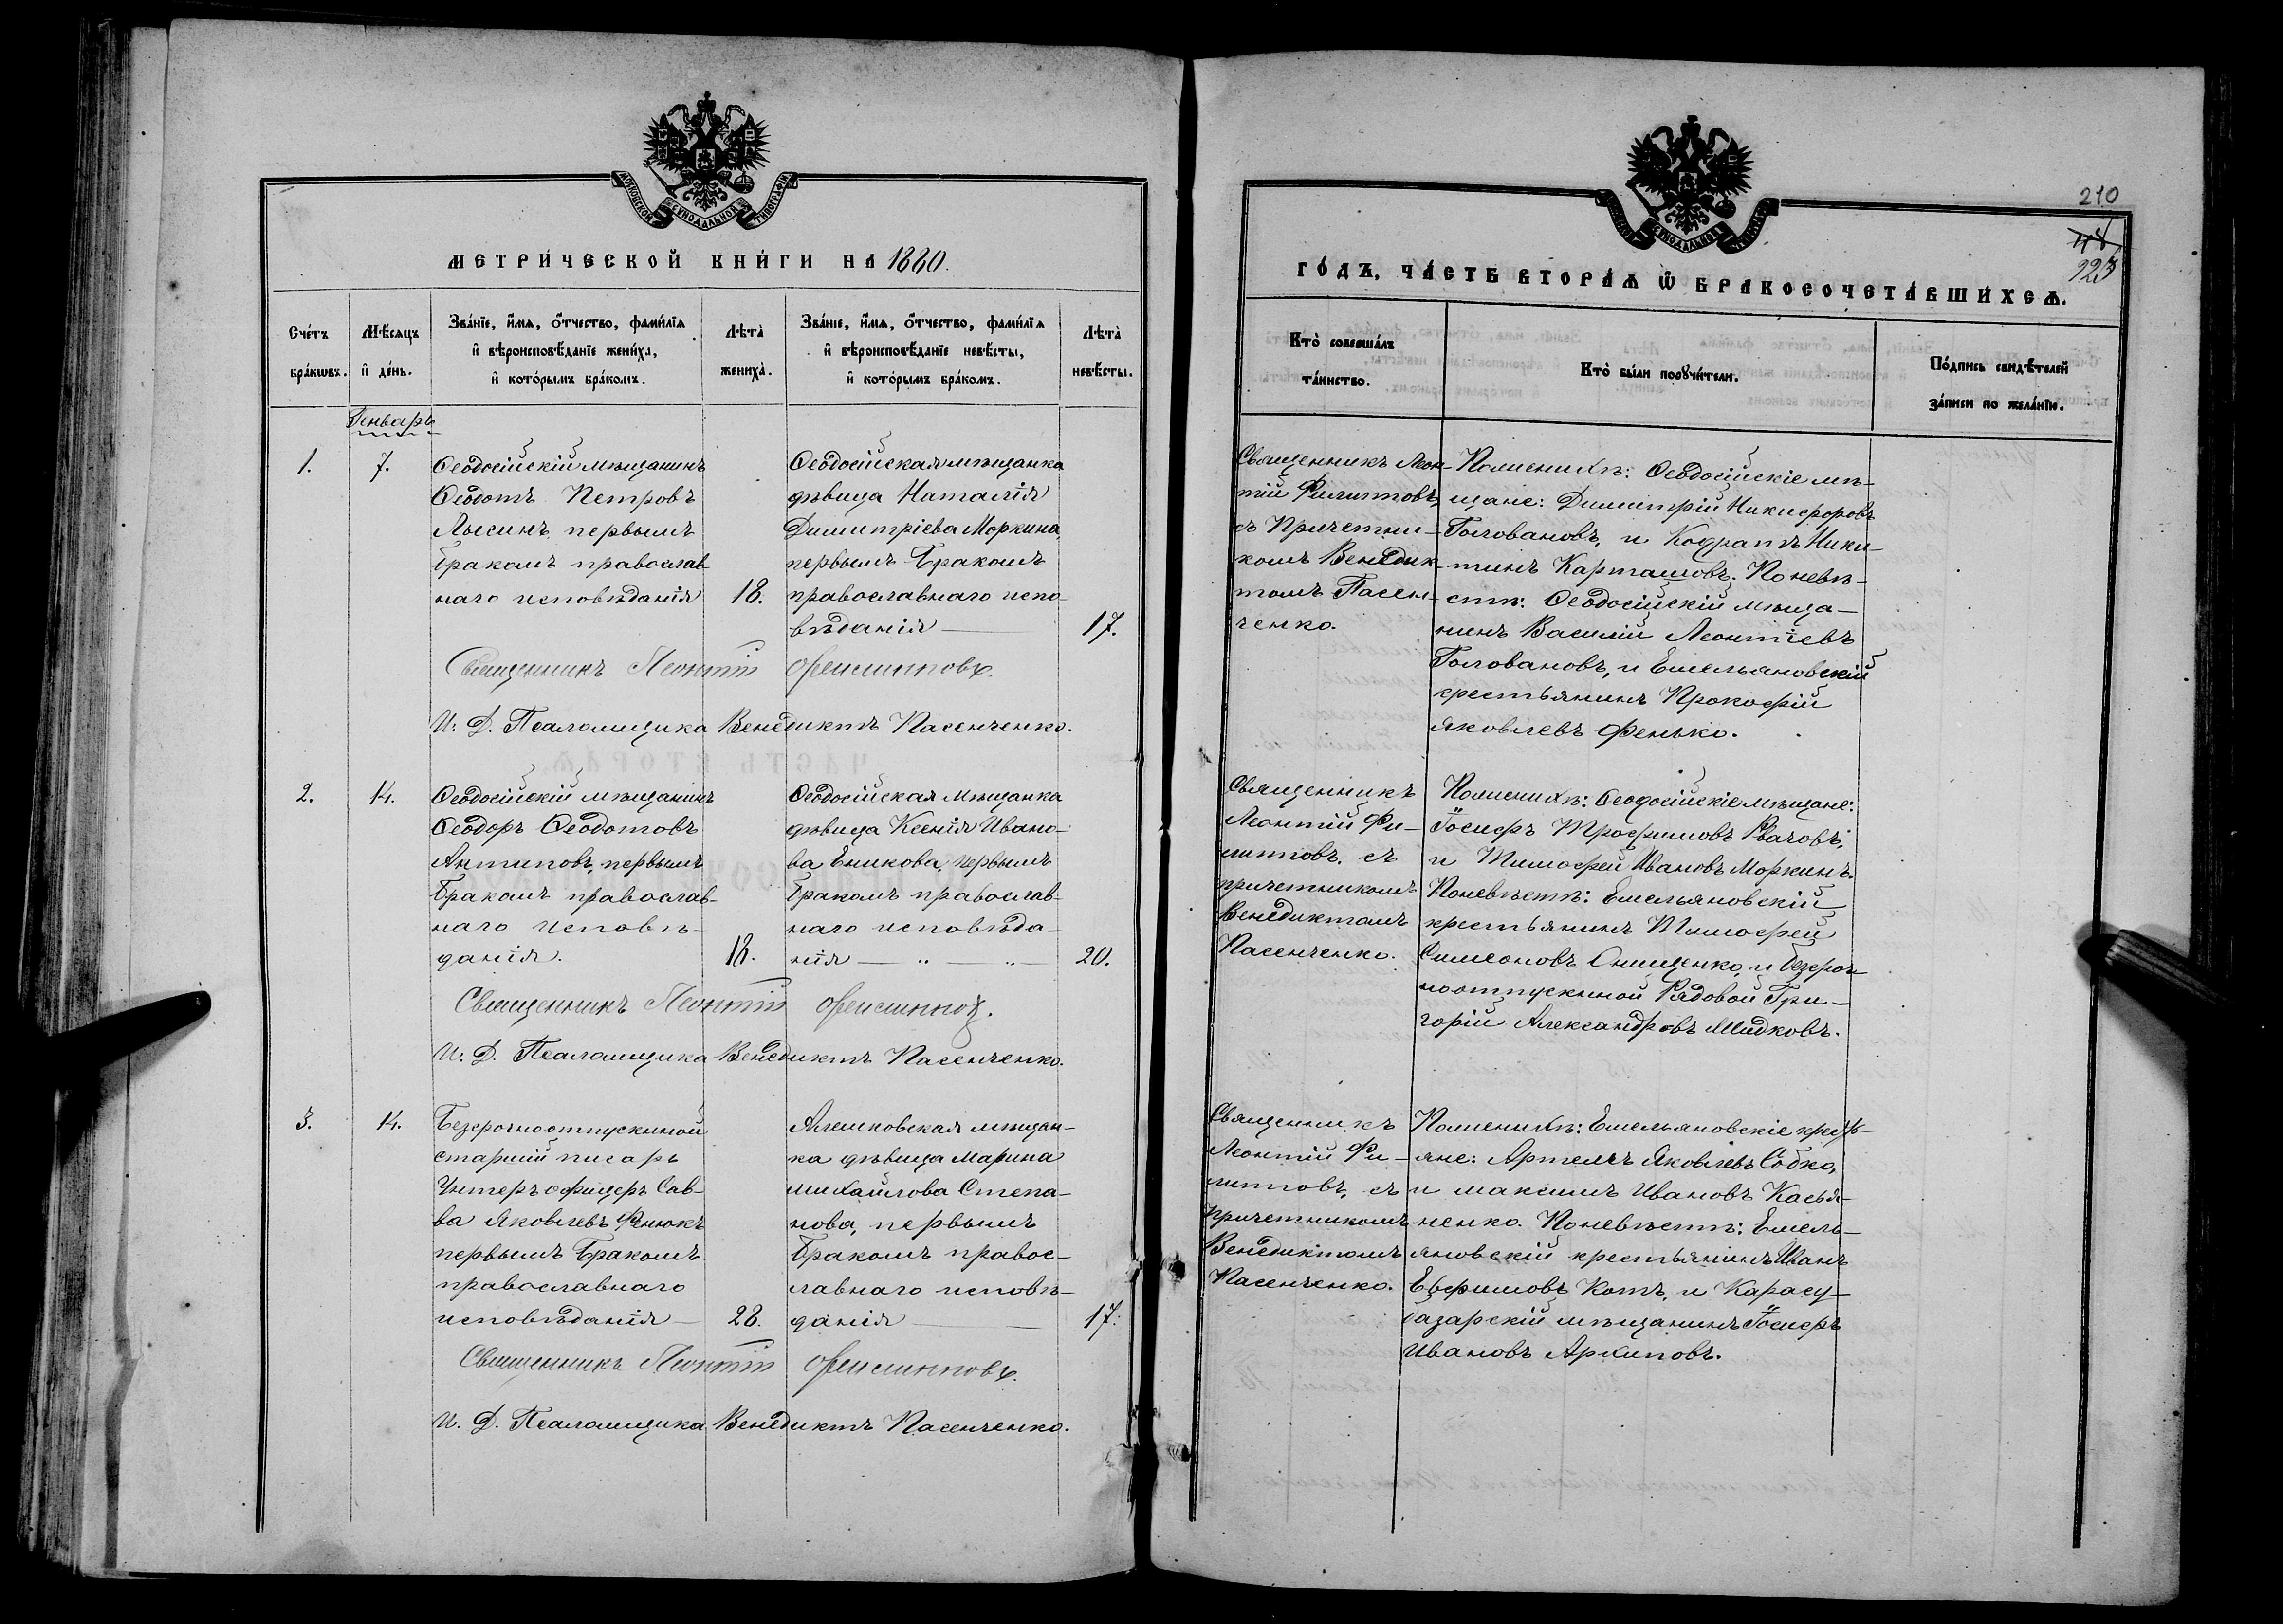 МОСКОВСКОЙ СѴНОДАЛЬНОЙ ТИПОГРАФІИ
МЕТРИ́ЧЕСКОЙ КНИ́ГИ НА 1880.
Сче́тъ бра́кѡвъ.
Мѣ́сяцъ и҆ де́нь.
Зва́нїе, и҆́мѧ, ѻ҆́тчество, фами́лїѧ
и҆ вѣроисповѣ́данїе жениха̀,
и҆ кото́рымъ бра́комъ.
Лѣта̀ жениха̀.
Зва́нїе, и҆́мѧ, ѻ҆́тчество, фами́лїѧ
и҆ вѣроисповѣ́данїе невѣ́сты,
и҆ кото́рымъ бра́комъ.
Лѣта̀ невѣ́сты.
Генварь
1.
7.
Ѳеодосійскій мѣщанинъ
Ѳеодотъ Петровъ
Лысинъ, первымъ
бракомъ православ-
наго исповѣданія
18.
Ѳеодосійская мѣщанка
дѣвица Наталія
Димитріева Моркина,
первымъ бракомъ
православнаго испо-
вѣданія
17.
Священникъ Леонтій Филипповъ.
И: Д. Псаломщика Венедиктъ Пасенченко.
2.
14.
Ѳеодосійскій мѣщанинъ
Ѳеодоръ Ѳеодотовъ
Антиповъ, первымъ
бракомъ православ-
наго исповѣ-
данія.
18.
Ѳеодосійская мѣщанка
дѣвица Ксенія Ивано-
ва Еникова, первымъ
бракомъ православ-
наго исповѣда-
нія
20.
Священникъ Леонтій Филиппов.
И: Д. Псаломщика Венедиктъ Пасенченко.
3.
14.
Безсрочноотпускной
старшій писарь
Унтеръ офицеръ Сав-
ва Яковлевъ Фенюкъ
первымъ бракомъ
православнаго
исповѣданія
28.
Алешковская мѣщан-
ка дѣвица Марина
Михайлова Степа-
нова, первымъ
бракомъ правос-
лавнаго исповѣ-
данія
17.
Священникъ Леонтій Филипповъ.
И. Д. Псаломщика Венедиктъ Пасенченко.
210
ГО́ДЪ, ЧА́СТЬ ВТОРА́Ѧ Ѡ҆ БРАКОСОЧЕТА́ВШИХСѦ.
Кто̀ соверша́лъ
та́инство.
Кто̀ бы́ли порꙋчи́тели.
По́дпись свидѣ́телей
за́писи по жела́нїю.
Священникъ Леон-
тій Филипповъ,
съ Причетни-
комъ Венедик-
томъ Пасен-
ченко.
Поженихѣ: Ѳеодосійскіе мѣ-
щане: Димитрій Никифоровъ
Головановъ, и Кодратъ Ники-
тинъ Карташовъ. Поневѣ-
стѣ: Ѳеодосійскій мѣща-
нинъ Василій Леонтіевъ
Головановъ, и Емельяновскій
крестьянинъ Прокофій
Яковлевъ Фенько.
Священникъ
Леонтій Фи-
липповъ, съ
причетникомъ
Венедиктомъ
Пасенченко.
Поженихѣ: Ѳеодосійскіе мѣщане:
Іосифъ Трофимовъ Рвачовъ,
и Тимофей Ивановъ Моркинъ.
Поневѣстѣ: Емельяновскій
крестьянинъ Тимофей
Симеоновъ Онищенко, и безсроч-
ноотпускной Рядовой Гри-
горій Александровъ Мидковъ.
Священникъ
Леонтій Фи-
липповъ, съ
причетникомъ
Венедиктомъ
Пасенченко.
Поженихѣ: Емельяновскіе крестья-
яне: Артемъ Яковлевъ Собко,
и Максимъ Ивановъ Касья-
ненко. Поневѣстѣ: Емель-
яновскій крестьянинъ Иванъ
Евфимовъ Котъ, и Карасу-
базарскій мѣщанинъ Іосифъ
Ивановъ Архиповъ.